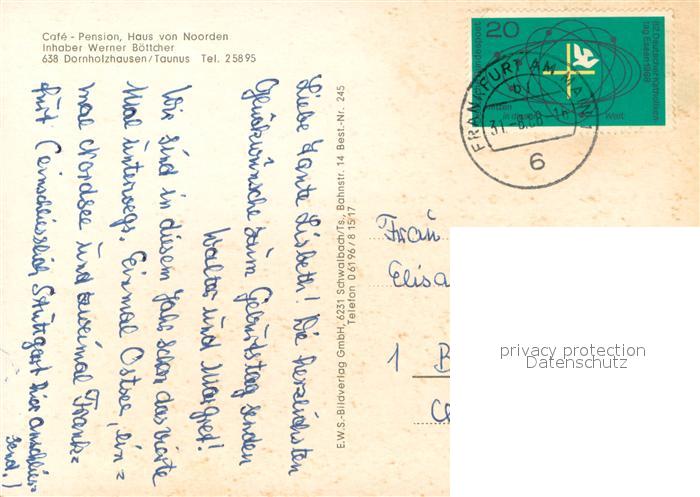 Café - Pension, Haus von Noorden
Inhaber Werner Böttcher
638 Dornholzhausen/Taunus Tel. 25895
Liebe Tante Lisbeth! Die herzlichsten
Glückwünsche zum Geburtstag senden
Walter und Margret!
Wir sind in diesem Jahr schon das vierte
Mal unterwegs. Einmal Ostsee, ein=
mal Nordsee und zweimal Frank=
furt (einschliesslich Stuttgart hier anschlies=
send.)
E.W.S.-Bildverlag GmbH, 6231 Schwalbach/Ts., Bahnstr. 14 Best.-Nr. 245
Telefon 06196/81517
20
Deutsche Bundespost
82. Deutscher Katholikentag Essen 1968
Mitten in dieser Welt
FRANKFURT AM MAIN 1
31.-8.68-1
6
Frau
Elisa
1 B
privacy protection
Datenschutz